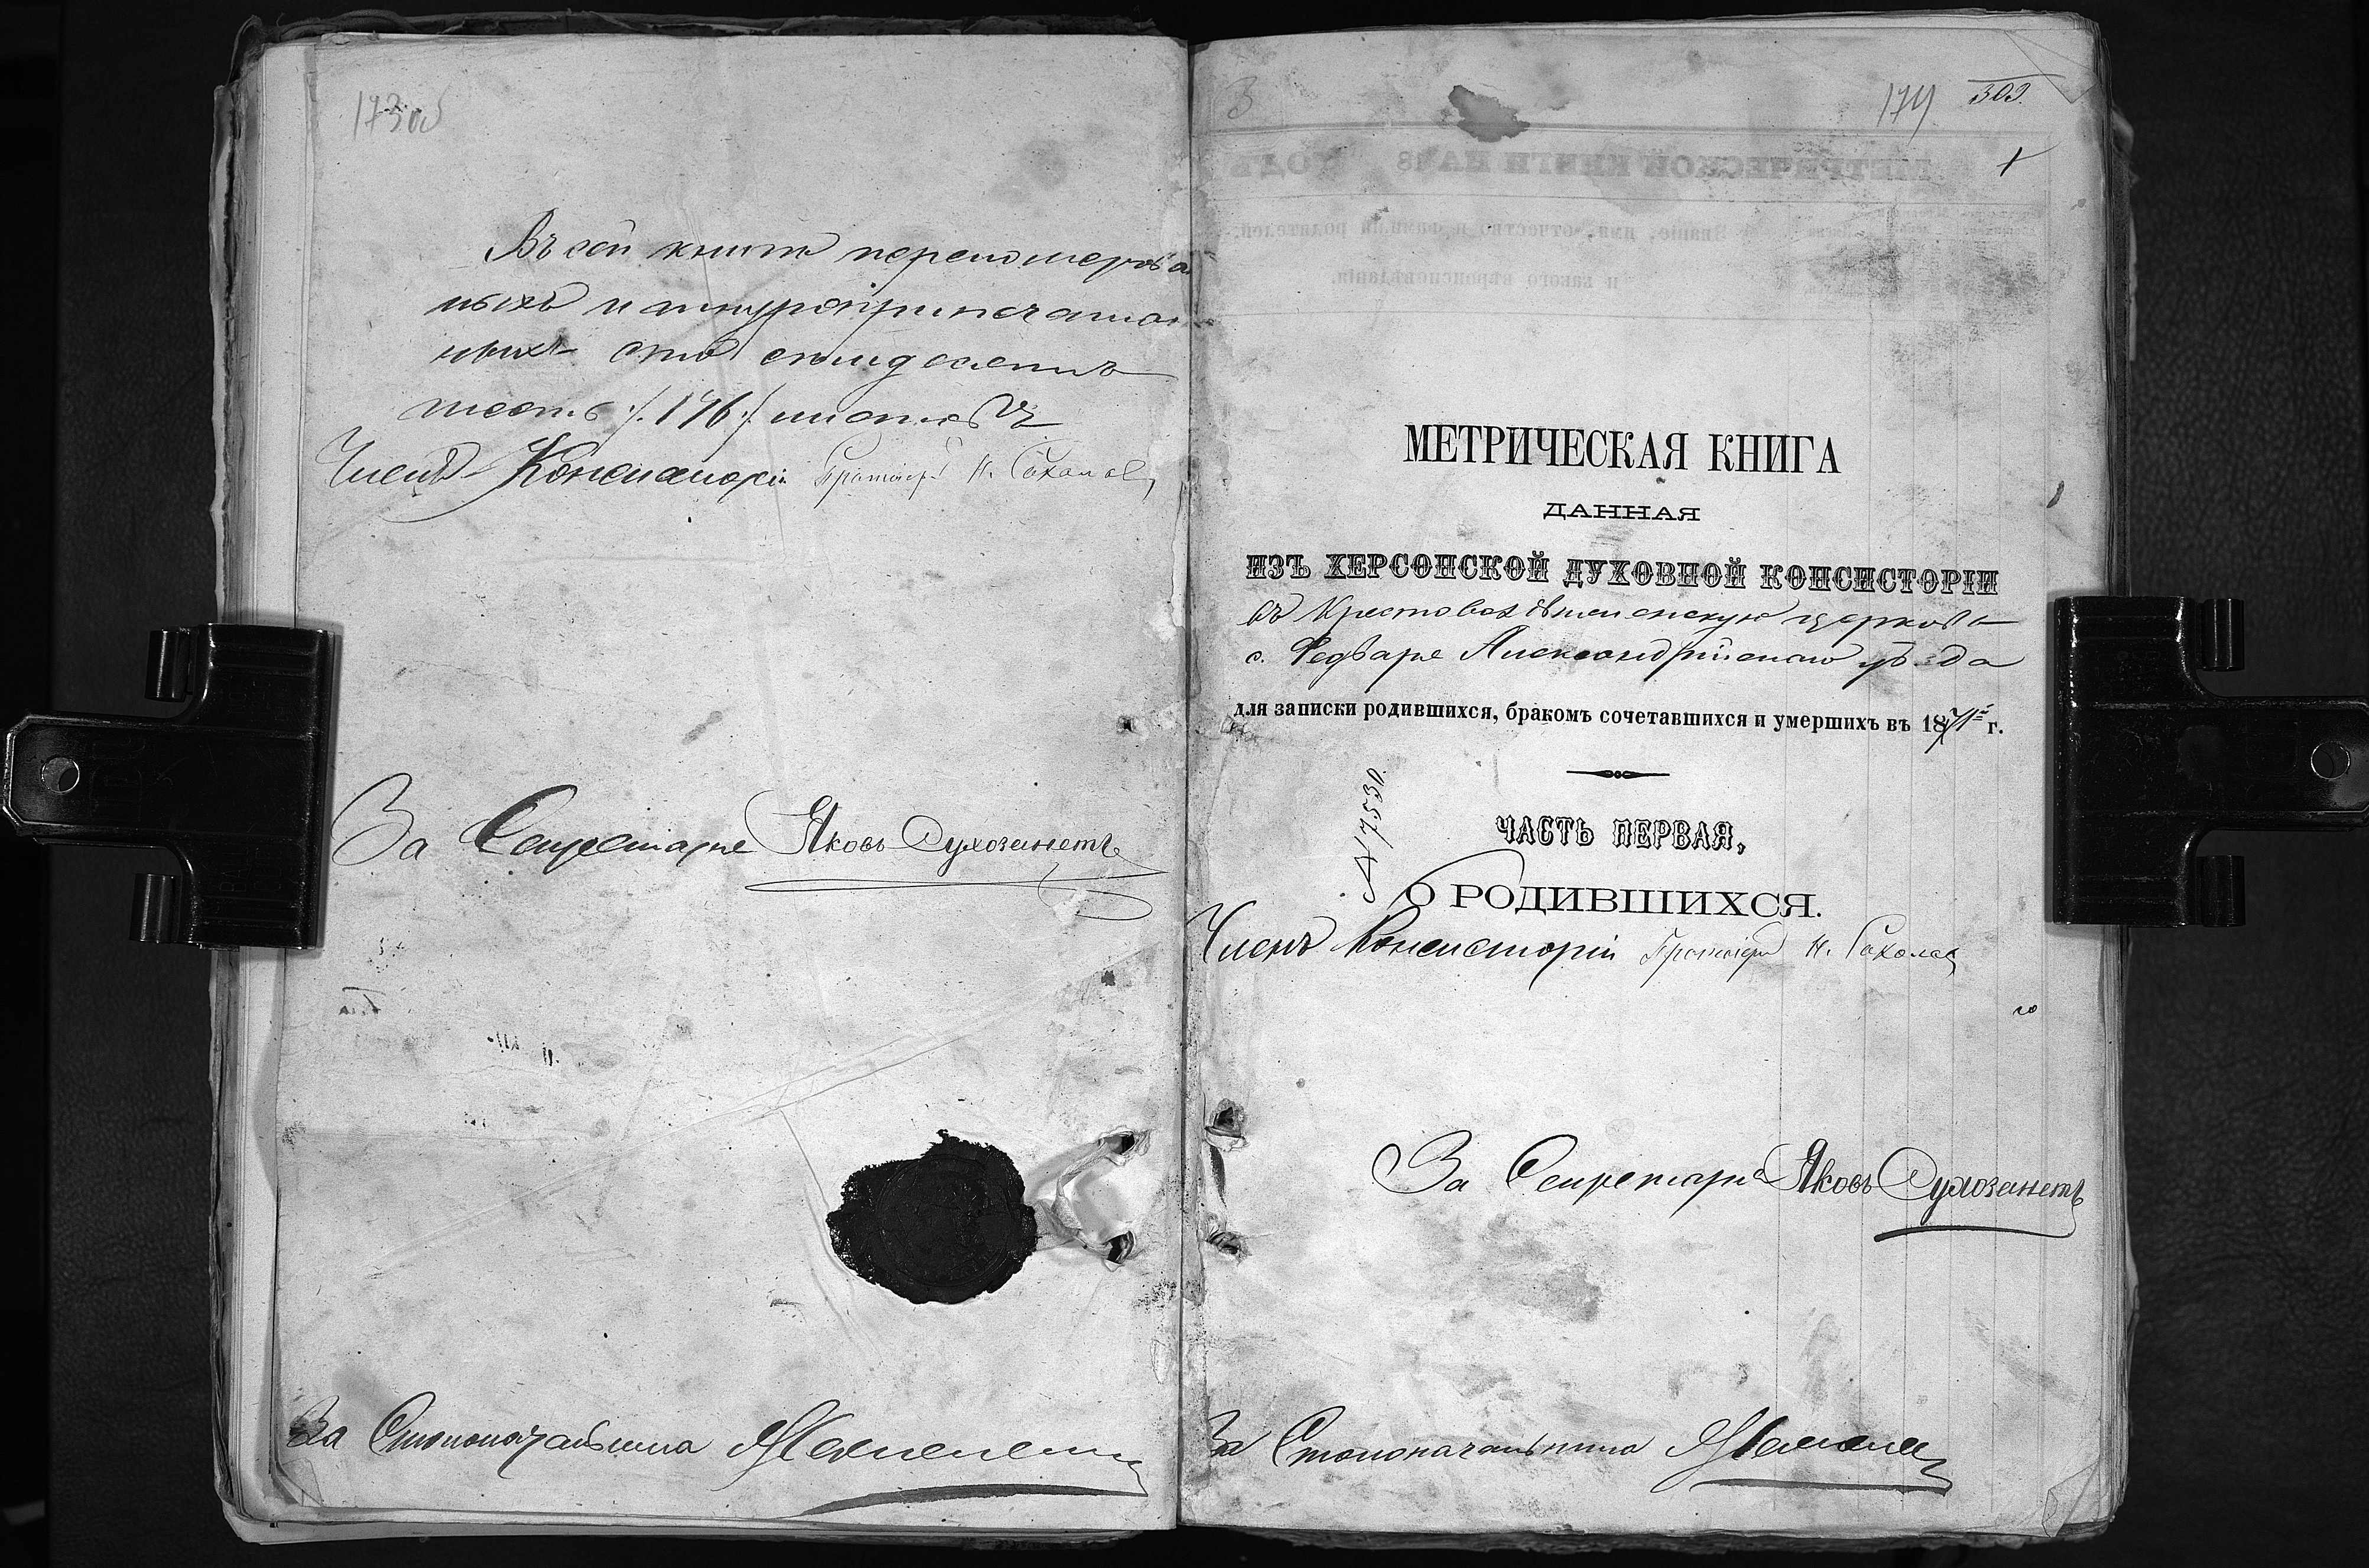 173об
Въ сей книгѣ перенумерован
ныхъ и шнуроприпечатан
ныхъ сто семьдесятъ
шесть /:176:/ листовъ
Членъ Консисторіи Протоіерей Н. Соколов
За Секретаря Яковъ Сухозанетъ
За Столоначальника
3
174 303.
МЕТРИЧЕСКОЙ КНИГИ НА 18 ГОДЪ
Званіе, имя, отчество и фамилія родителей,
и какого вѣроисповѣданія.
МЕТРИЧЕСКАЯ КНИГА
ДАННАЯ
ИЗЪ ХЕРСОНСКОЙ ДУХОВНОЙ КОНСИСТОРІИ
въ Крестовоздвиженскую церковь
с. Федваря Александрійскаго уѣзда
для записки родившихся, бракомъ сочетавшихся и умершихъ въ 1871 г.
№ 7530.
ЧАСТЬ ПЕРВАЯ,
О РОДИВШИХСЯ.
Членъ Консисторіи Протоіерей Н. Соколов
За Секретаря Яковъ Сухозанетъ
За Столоначальника